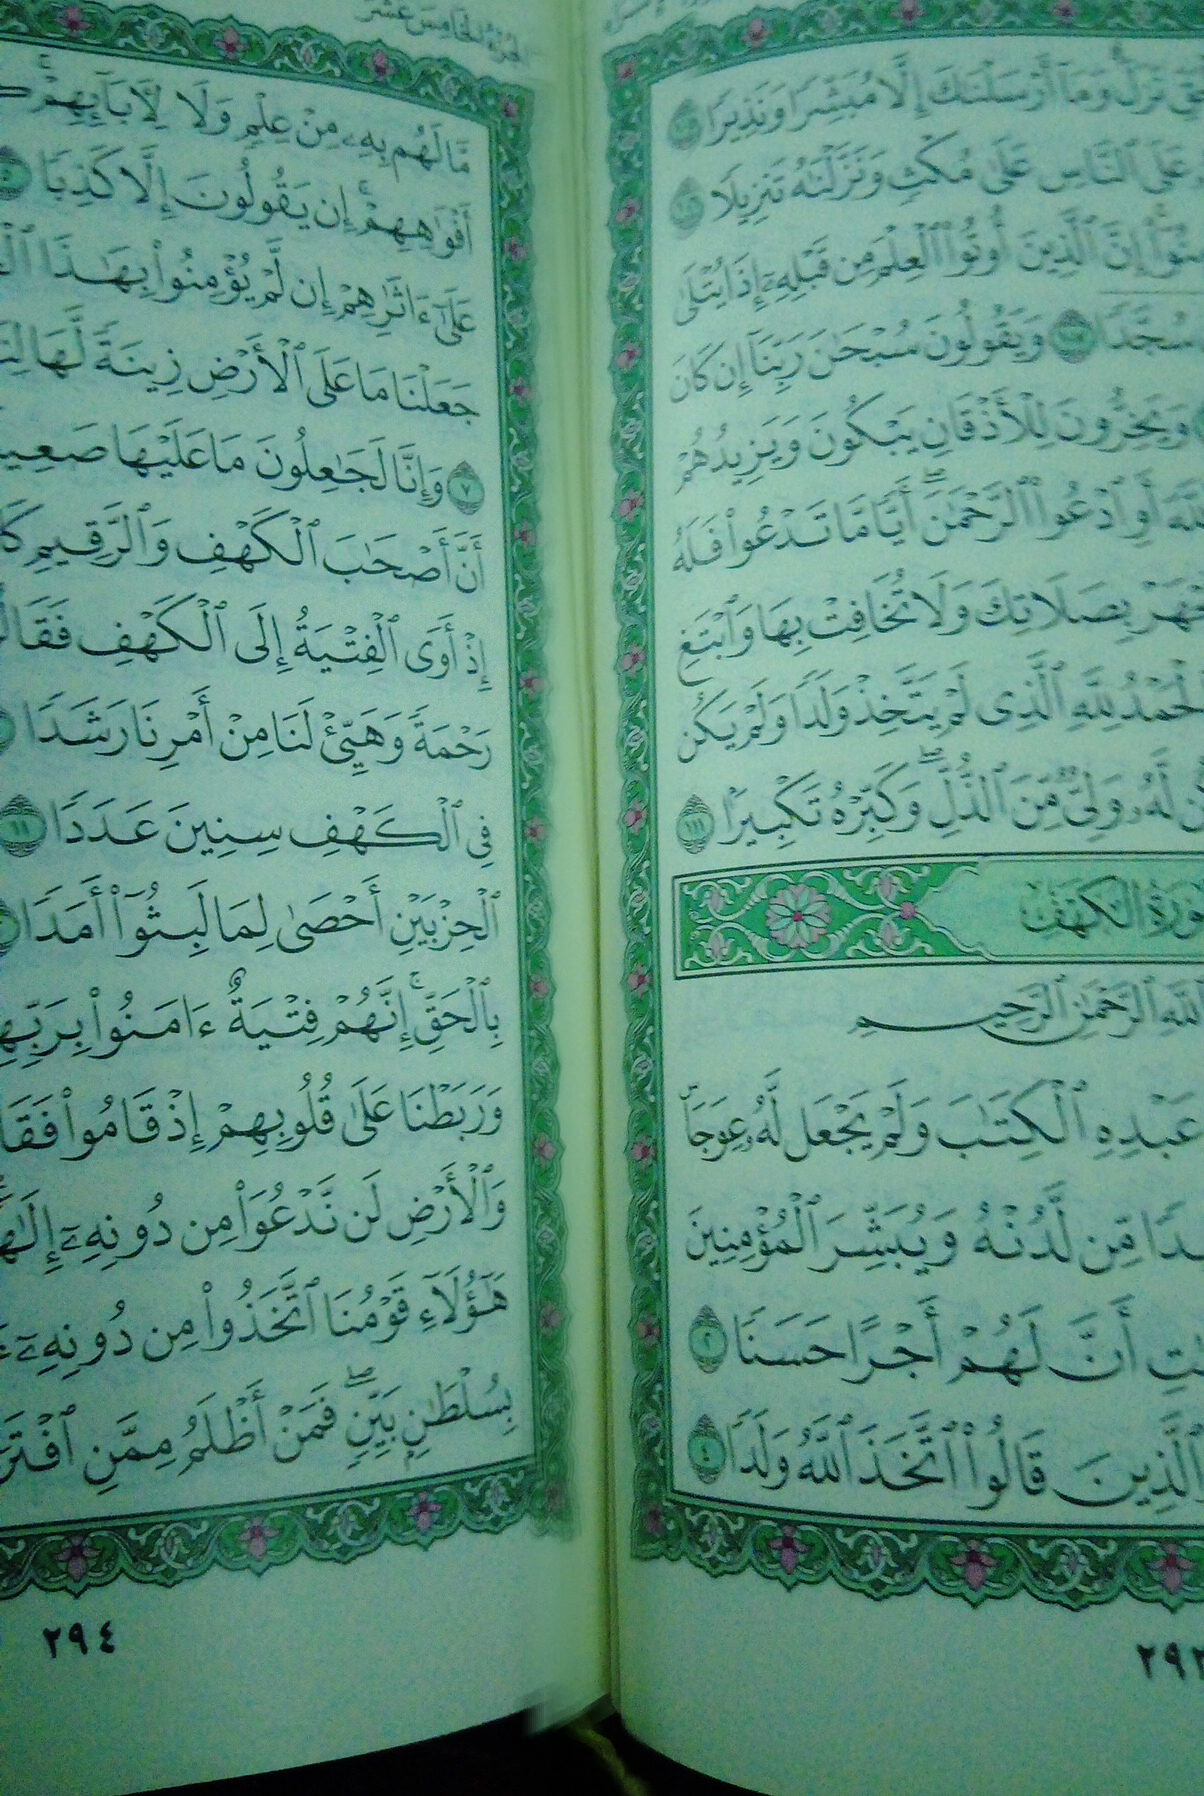 وَمَآ أَرْسَلْنَٰكَ إِلَّا مُبَشِّرًا وَنَذِيرًا ١٠٥
عَلَى ٱلنَّاسِ عَلَىٰ مُكْثٍ وَنَزَّلْنَٰهُ تَنزِيلًا ١٠٦
إِنَّ ٱلَّذِينَ أُوتُوا۟ ٱلْعِلْمَ مِن قَبْلِهِۦٓ إِذَا يُتْلَىٰ
سُجَّدًا ١٠٧ وَيَقُولُونَ سُبْحَٰنَ رَبِّنَآ إِن كَانَ
وَيَخِرُّونَ لِلْأَذْقَانِ يَبْكُونَ وَيَزِيدُهُمْ
أَوِ ٱدْعُوا۟ ٱلرَّحْمَٰنَ ۖ أَيًّا مَّا تَدْعُوا۟ فَلَهُ
بِصَلَاتِكَ وَلَا تُخَافِتْ بِهَا وَٱبْتَغِ
لِلَّهِ ٱلَّذِى لَمْ يَتَّخِذْ وَلَدًا وَلَمْ يَكُن
لَّهُۥ وَلِىٌّ مِّنَ ٱلذُّلِّ ۖ وَكَبِّرْهُ تَكْبِيرًۢا ١١١
سُورَةُ الكَهْفِ
ٱللَّهِ ٱلرَّحْمَٰنِ ٱلرَّحِيمِ
عَبْدِهِ ٱلْكِتَٰبَ وَلَمْ يَجْعَل لَّهُۥ عِوَجَا ۜ
مِّن لَّدُنْهُ وَيُبَشِّرَ ٱلْمُؤْمِنِينَ
أَنَّ لَهُمْ أَجْرًا حَسَنًا ٢
ٱلَّذِينَ قَالُوا۟ ٱتَّخَذَ ٱللَّهُ وَلَدًا ٤
الجزء الخامس عشر
مَّا لَهُم بِهِۦ مِنْ عِلْمٍ وَلَا لِـَٔابَآئِهِمْ ۚ
أَفْوَٰهِهِمْ ۚ إِن يَقُولُونَ إِلَّا كَذِبًا
عَلَىٰٓ ءَاثَٰرِهِمْ إِن لَّمْ يُؤْمِنُوا۟ بِهَٰذَا
جَعَلْنَا مَا عَلَى ٱلْأَرْضِ زِينَةً لَّهَا
٧ وَإِنَّا لَجَٰعِلُونَ مَا عَلَيْهَا
أَنَّ أَصْحَٰبَ ٱلْكَهْفِ وَٱلرَّقِيمِ
إِذْ أَوَى ٱلْفِتْيَةُ إِلَى ٱلْكَهْفِ
رَحْمَةً وَهَيِّئْ لَنَا مِنْ أَمْرِنَا رَشَدًا
فِى ٱلْكَهْفِ سِنِينَ عَدَدًا ١١
ٱلْحِزْبَيْنِ أَحْصَىٰ لِمَا لَبِثُوٓا۟ أَمَدًا
بِٱلْحَقِّ ۚ إِنَّهُمْ فِتْيَةٌ ءَامَنُوا۟ بِرَبِّهِ
وَرَبَطْنَا عَلَىٰ قُلُوبِهِمْ إِذْ قَامُوا۟
وَٱلْأَرْضِ لَن نَّدْعُوَا۟ مِن دُونِهِۦٓ
هَٰٓؤُلَآءِ قَوْمُنَا ٱتَّخَذُوا۟ مِن دُونِهِۦٓ
بِسُلْطَٰنٍۭ بَيِّنٍ ۖ فَمَنْ أَظْلَمُ مِمَّنِ
٢٩٤